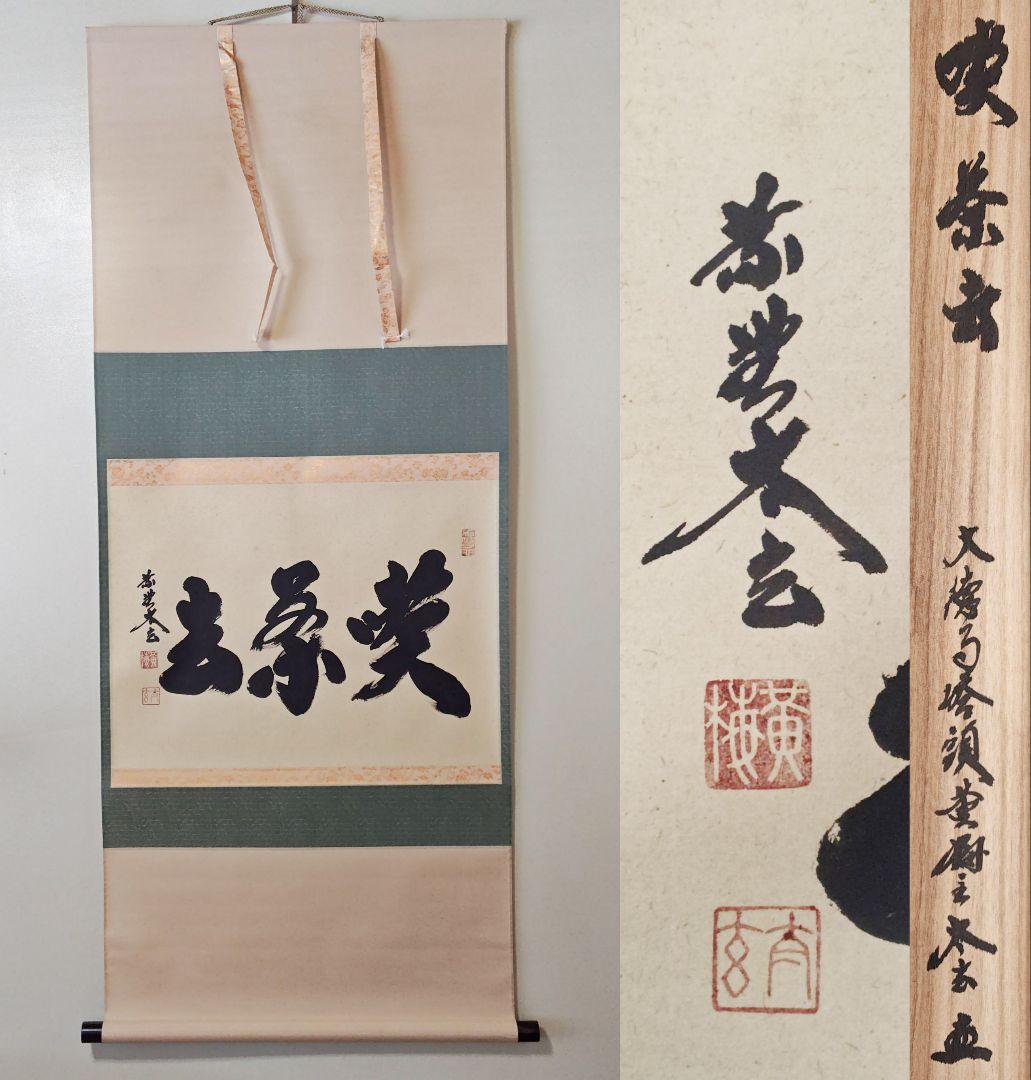 喫茶去
紫野太玄
黄梅
太玄
喫茶去
大徳寺塔頭黄梅主太玄